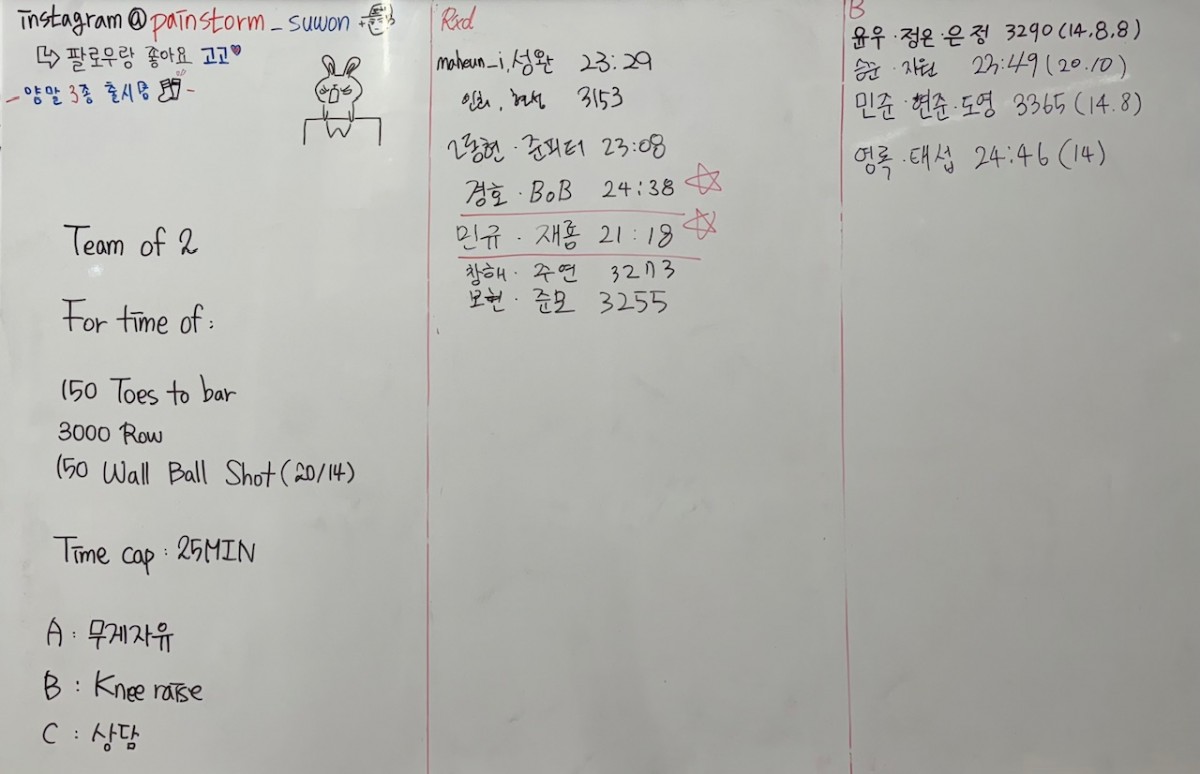 instagram@painstorm_suwon
↳ 팔로우랑 좋아요 고고♥
- 양말 3종 출시중 -
Team of 2
For time of:
150 Toes to bar
3000 Row
150 Wall Ball Shot(20/14)
Time cap : 25MIN
A : 무게자유
B : Knee raise
C : 상담
Rxd
maheun_i, 성완 23:29
3153
동현 · 준피터 23:08
경호 · BoB 24:38
민규 · 재룡 21:18
창해 · 주연 3273
보현 · 준모 3255
B
윤우 · 정은 · 은정 3290(14.8.8)
승준 · 지원 23:49(20.10)
민준 · 현준 · 도영 3365(14.8)
영록 · 태섭 24:46(14)